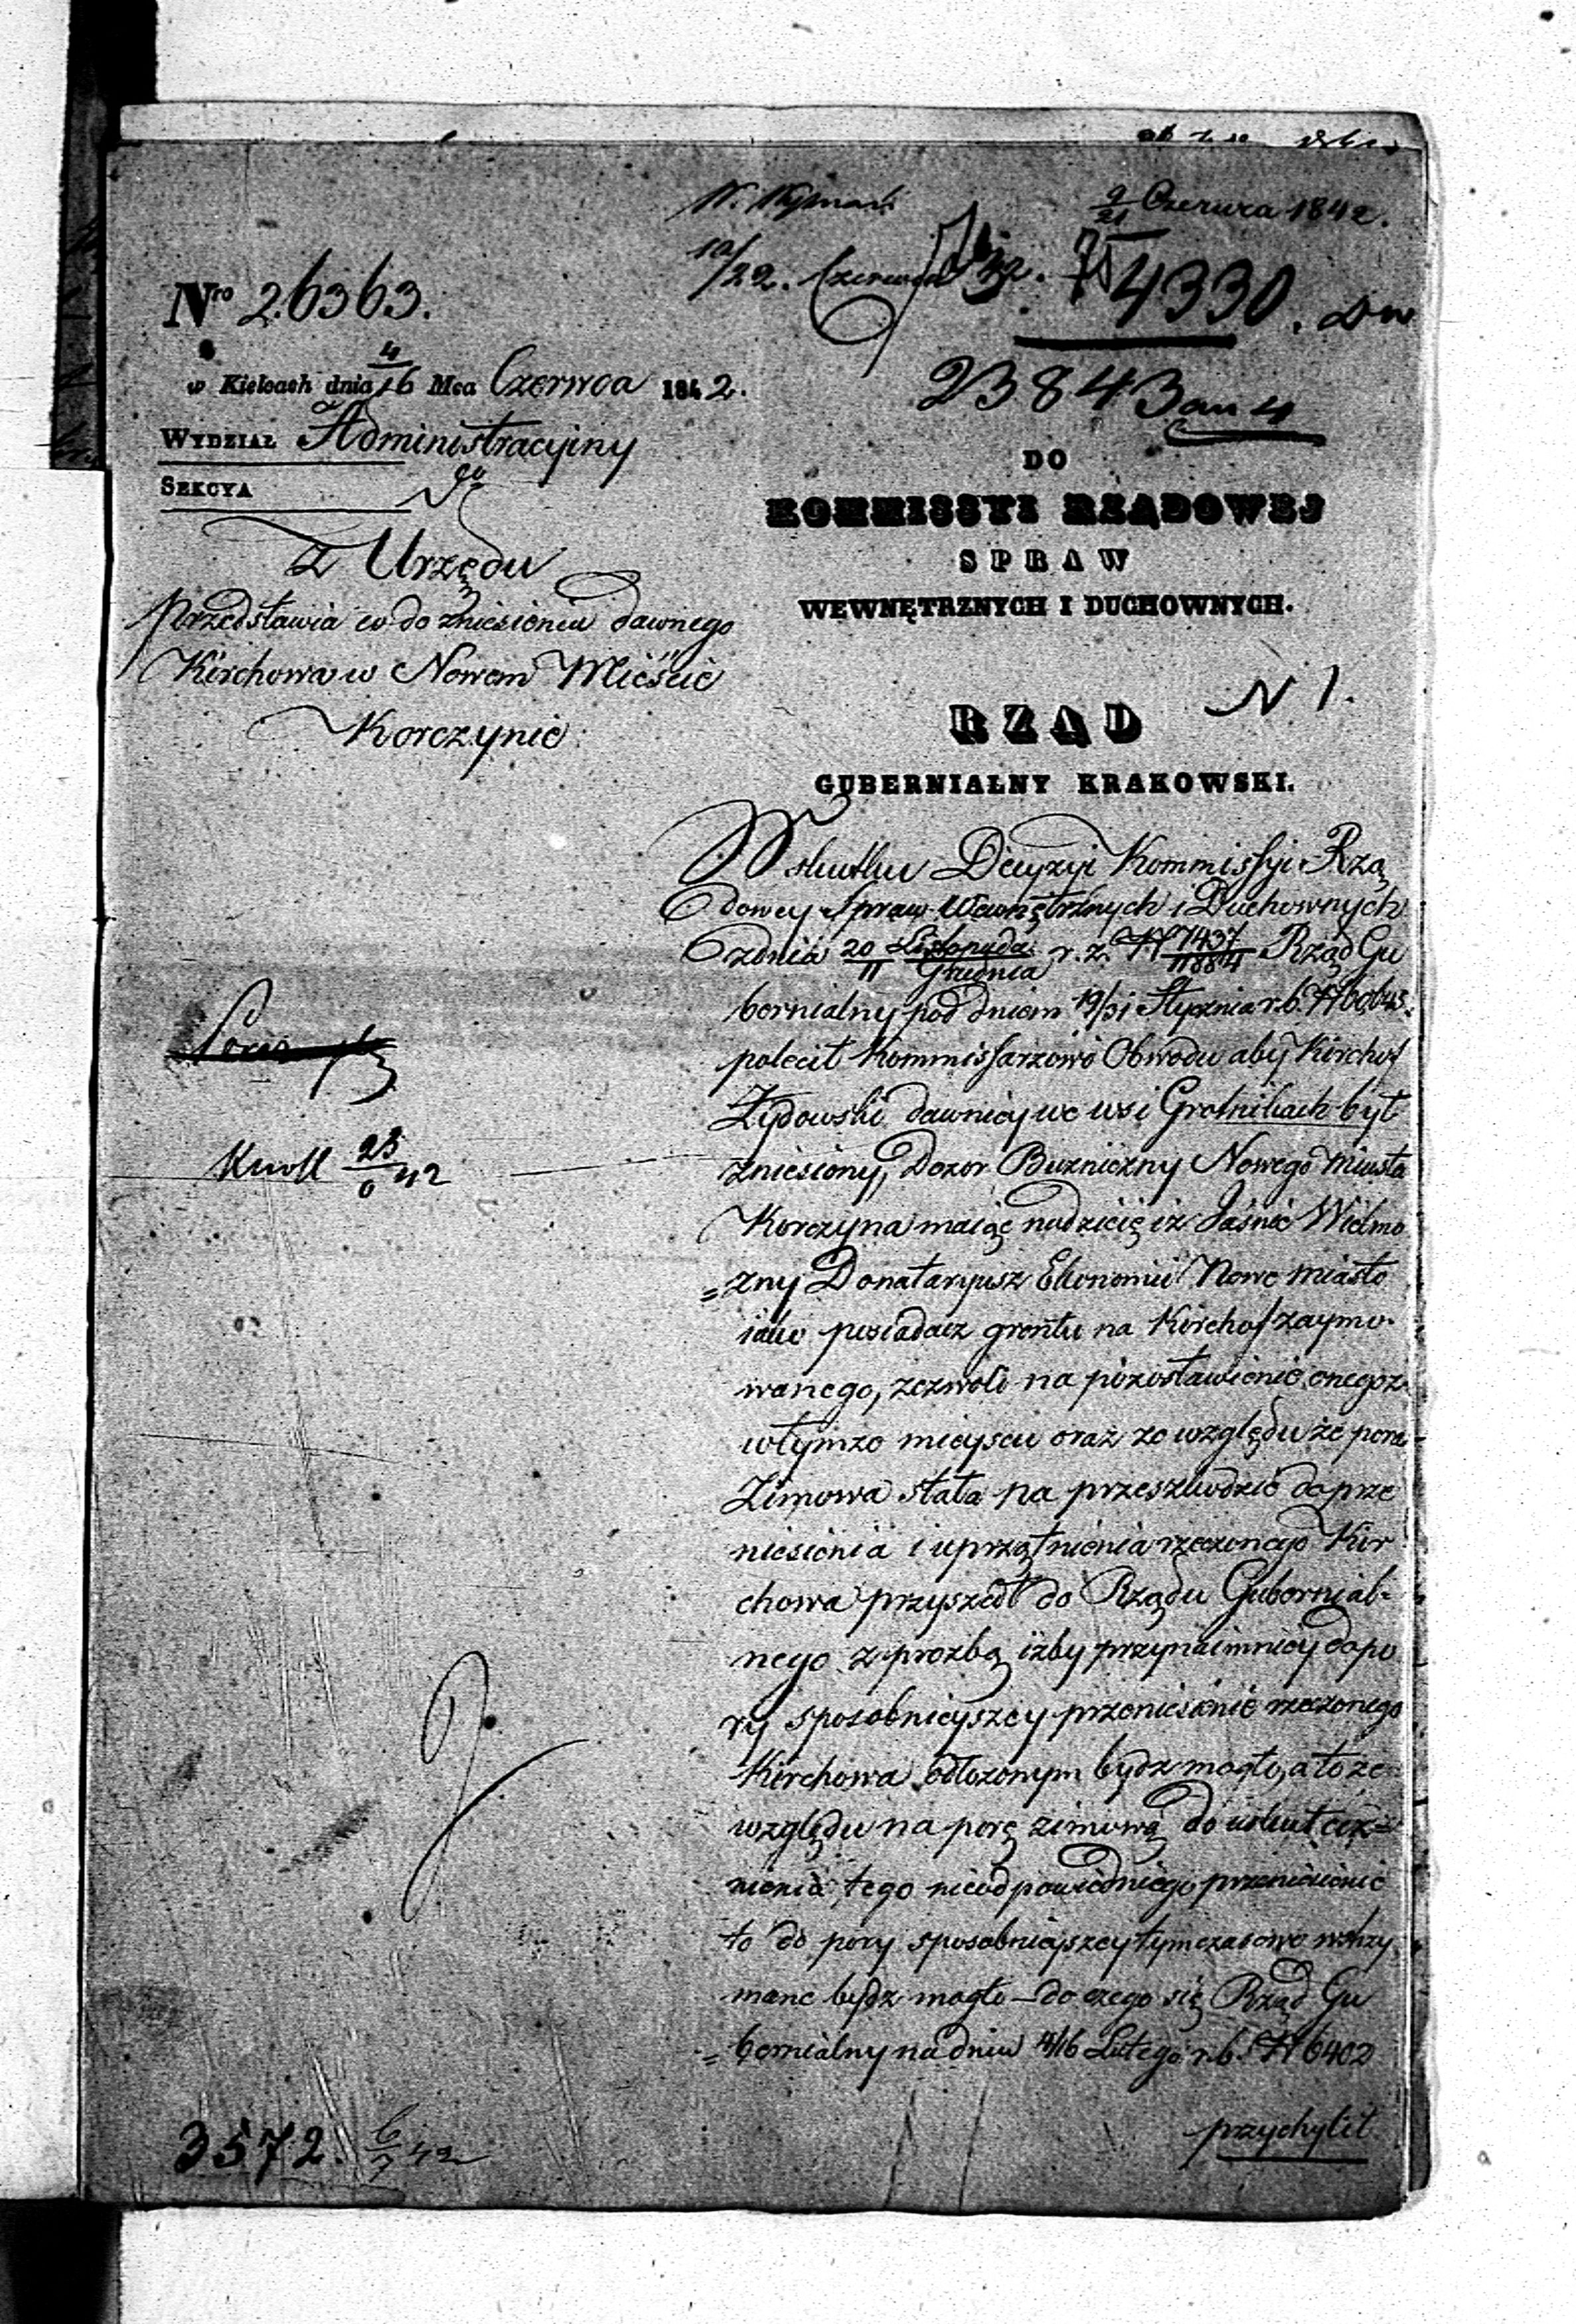 9/21 Czerwca 1842.
10/22. Czerwca
4330.
23843
Nro 26363.
w Kielcach dnia 4/16 Mca Czerwca 1842.
Wydział Administracyiny
Sekcya
Z Urzędu
Przedstawia co do zniesieniu dawnego
Kirchowa w Nowem Mieście
Korczynie
DO
KOMMISSYI RZĄDOWEJ
SPRAW
WEWNĘTRZNYCH I DUCHOWNYCH.
N 1.
RZĄD
GUBERNIALNY KRAKOWSKI.
W skutku Decyzyi Kommissyi Rzą
dowey Spraw Wewnętrznych i Duchownych
z dnia 20/11 Listopada/Grudnia r. z. N 7437/11884 Rząd Gu
bernialny pod dniem 19/31 Stycznia r. b. N
polecił Kommissarzowi Obwodu aby Kirchof
Żydowski dawniey we wsi Grotnikach był
zniesiony, Dozor Bużniczny Nowego Miasta
Korczyna maiąc nadzieię iż Jaśnie Wielmo
=zny Donataryusz Ekonomii Nowe Miasto
iako posiadacz gruntu na Kirchof zaymo-
wanego, zezwoli na pozostawienie onegoż
w tymże mieyscu oraz ze względu że pora
Zimowa stała na przeszkodzie do prze
niesienia i uprzątnienia rzeczonego Kir
chowa przyszedł do Rządu Gubernial-
nego z prozbą iżby przynaimniey do po
ry sposobnieyszey przeniesienie rzeczonego
Kirchowa odłożonym bydz mogło, a to ze
względu na porę zimową do uskutecz=
nienia tego nieodpowiedniego przeniesienie
to do pory sposobnieyszey tymczasowo wstrzy
mane bydz mogło – do czego się Rząd Gu
=bernialny na dniu 4/16 Lutego r. b. N 6402
przychylił
Knoll 23/6 42
3572. 6/7 42